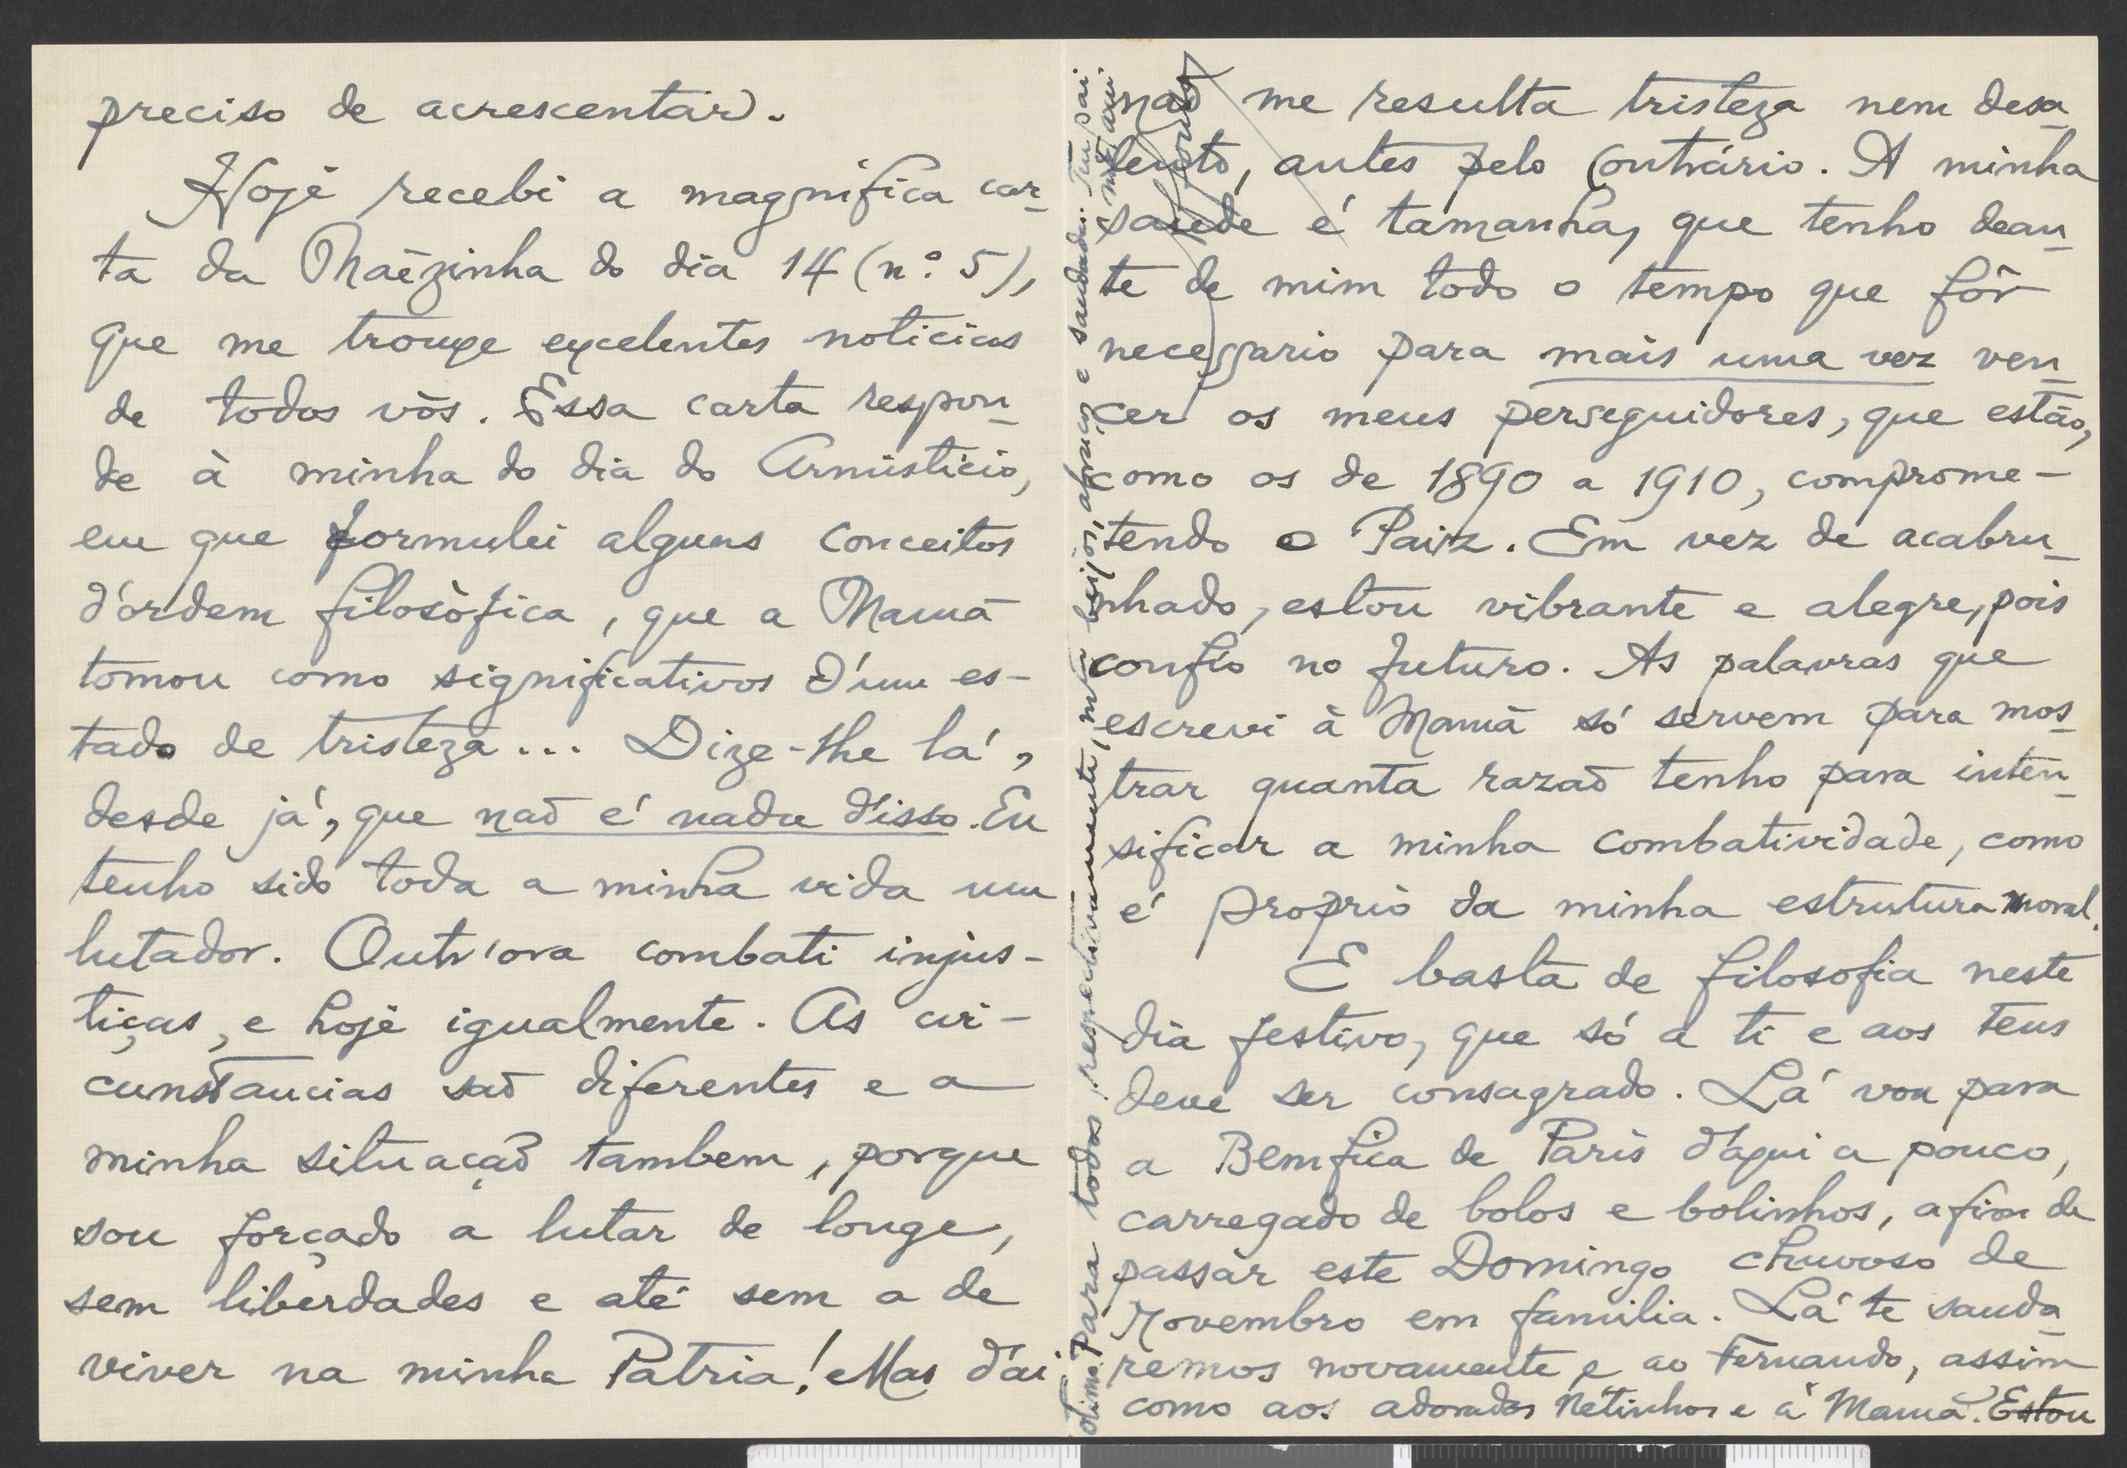 preciso de acrescentar.
Hoje recebi a magnifica car-
ta da Maēzinha do dia 14 (n.º 5),
que me trouxe excelentes noticias
de todos vós. Essa carta respon-
de à minha do dia do Armisticio,
em que formulei alguns conceitos
d'ordem filosòfica, que a Mamã
tomou como significativos d'um es-
tado de tristeza... Dize-lhe lá,
desde já, que naõ é nada d'isso. Eu
tenho sido toda a minha vida um
lutador. Outr'ora combati injus-
tiças, e hoje igualmente. As cir-
cunstancias saõ diferentes e a
minha situaçaõ tambem, porque
sou forçado a lutar de longe,
sem liberdades e até sem a de
viver na minha Patria! Mas d'aí
naõ me resulta tristeza nem desa-
lento, antes pelo contrário. A minha
saude é tamanha, que tenho dean-
te de mim todo o tempo que fôr
necessario para mais uma vez ven-
cer os meus perseguidores, que estão,
como os de 1890 a 1910, comprome-
tendo o Paiz. Em vez de acabru-
nhado, estou vibrante e alegre, pois
confio no futuro. As palavras que
escrevi à Mamã só servem para mos-
trar quanta razaõ tenho para inten-
sificar a minha combatividade, como
é proprio da minha estrutura moral.
E basta de filosofia neste
dia festivo, que só a ti e aos teus
deve ser consagrado. Lá vou para
a Bemfica de Paris d'aqui a pouco,
carregado de bolos e bolinhos, afim de
passar este Domingo chuvoso de
Novembro em familia. Lá te sauda-
remos novamente, e ao Fernando, assim
como aos adorados Netinhos e à Mamã. Estou
otimo. Para todos, respectivamente, mtos beijos, abraços e saudades. Teu pai
mto am.